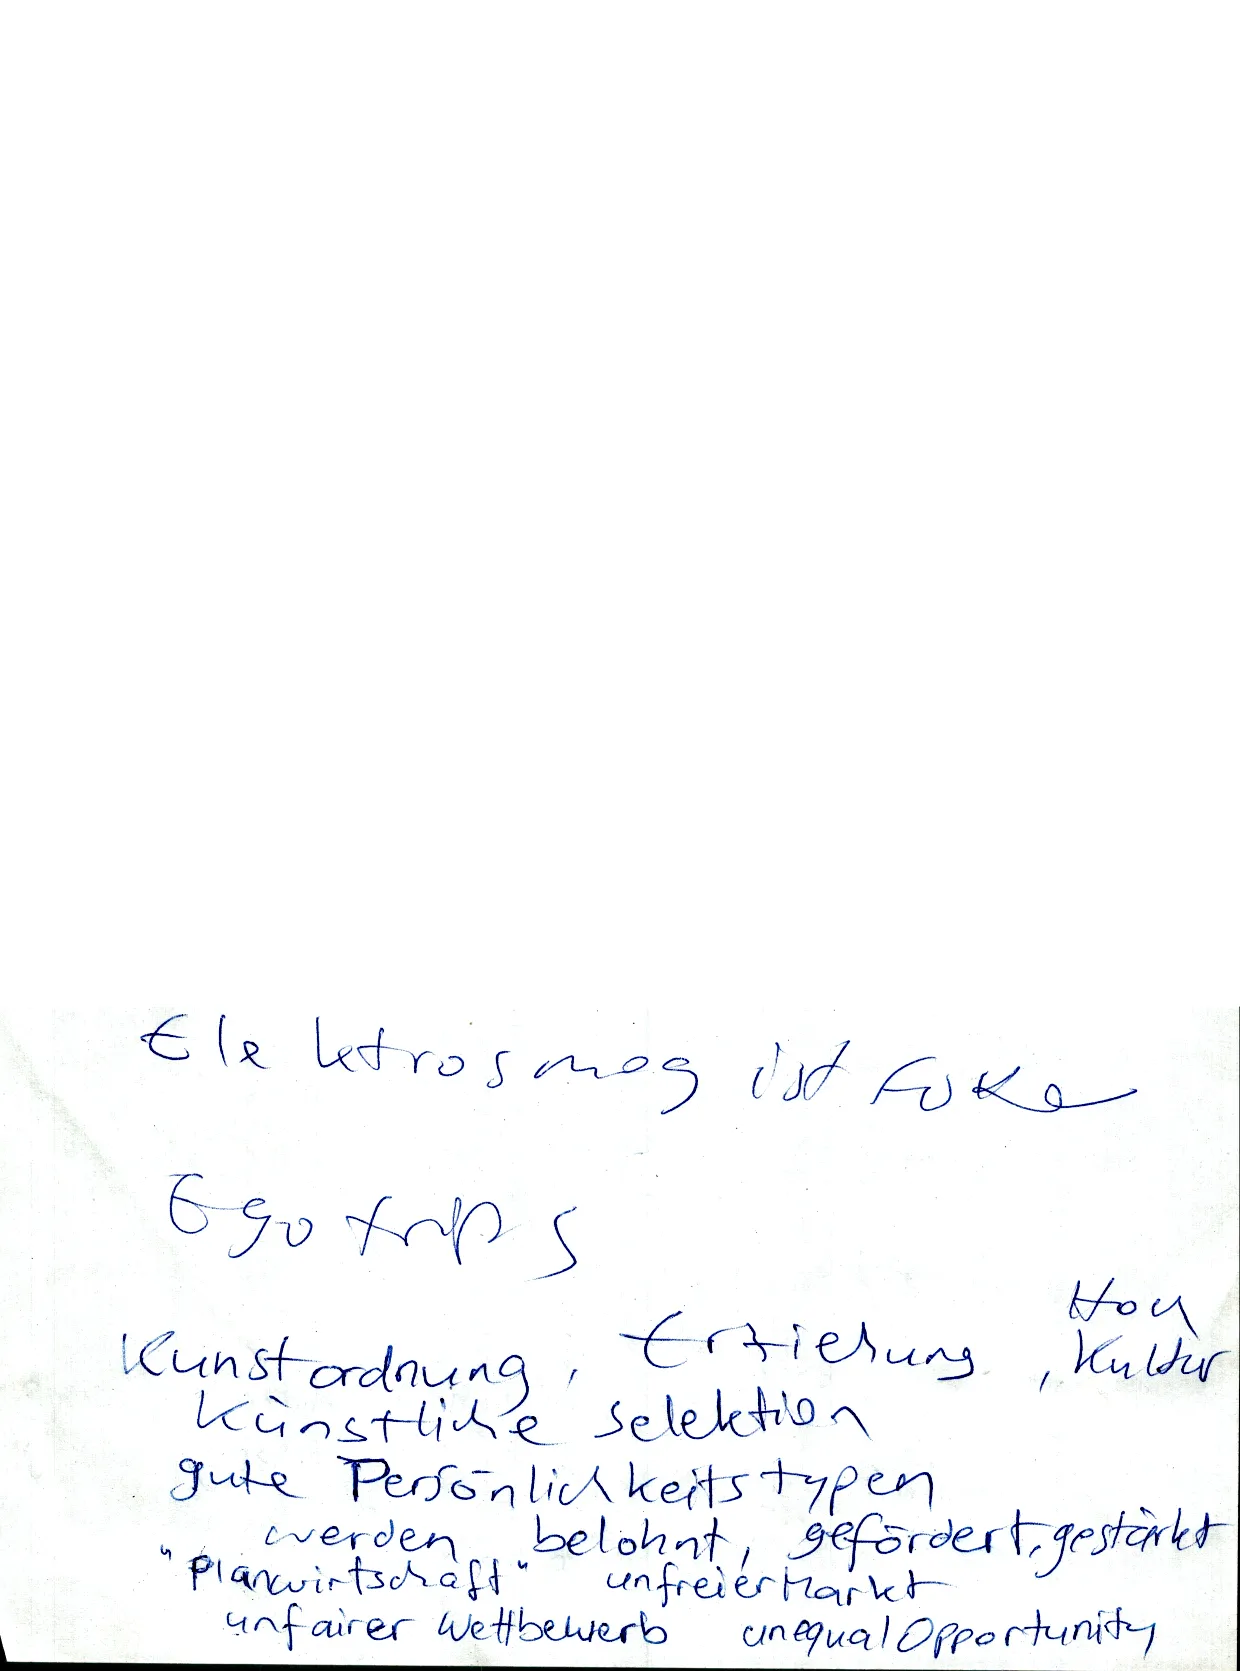 Elektrosmog ist Fake
Ego trips
Hoch
Kunstordnung, Erziehung, Kultur
Künstliche Selektion
gute Persönlichkeitstypen
werden belohnt, gefördert, gestärkt
"Planwirtschaft" unfreier Markt
unfairer Wettbewerb unequal Opportunity